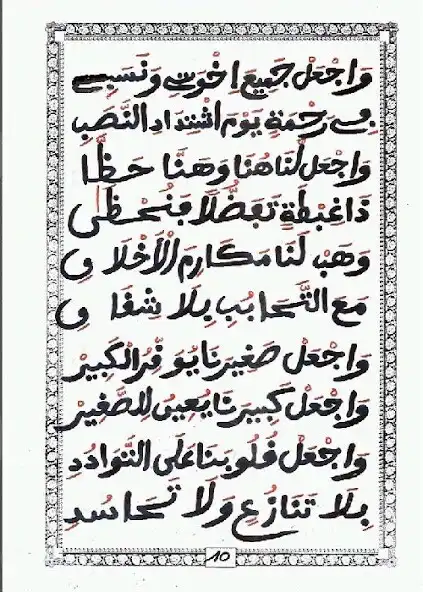 وَاجْعَلْ جَمِيعَ اخْوَتِي وَنَسَبِي
فِي رَحْمَةٍ يَوْمَ اشْتِدَادِ النَّصَبِ
وَاجْعَلْ لَنَا هُنَا وَهَنَّا حَظَّا
ذَا غِبْطَةٍ تَفَضُّلًا فَنُحْظَى
وَهَبْ لَنَا مَكَارِمَ الْأَخْلَاقِ
مَعَ التَّحَابُبِ بِلَا شِقَاقِ
وَاجْعَلْ صَغِيرَنَا يُوَقِّرُ الْكَبِيرْ
وَاجْعَلْ كَبِيرَنَا يُعِينُ لِلصَّغِيرْ
وَاجْعَلْ قُلُوبَنَا عَلَى التَّوَادُدِ
بِلَا تَنَازُعٍ وَلَا تَحَاسُدِ
10